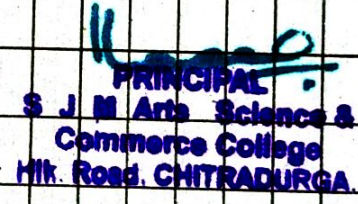 PRINCIPAL
S J M Arts Science &
Commerce College
Hlk. Road, CHITRADURGA.